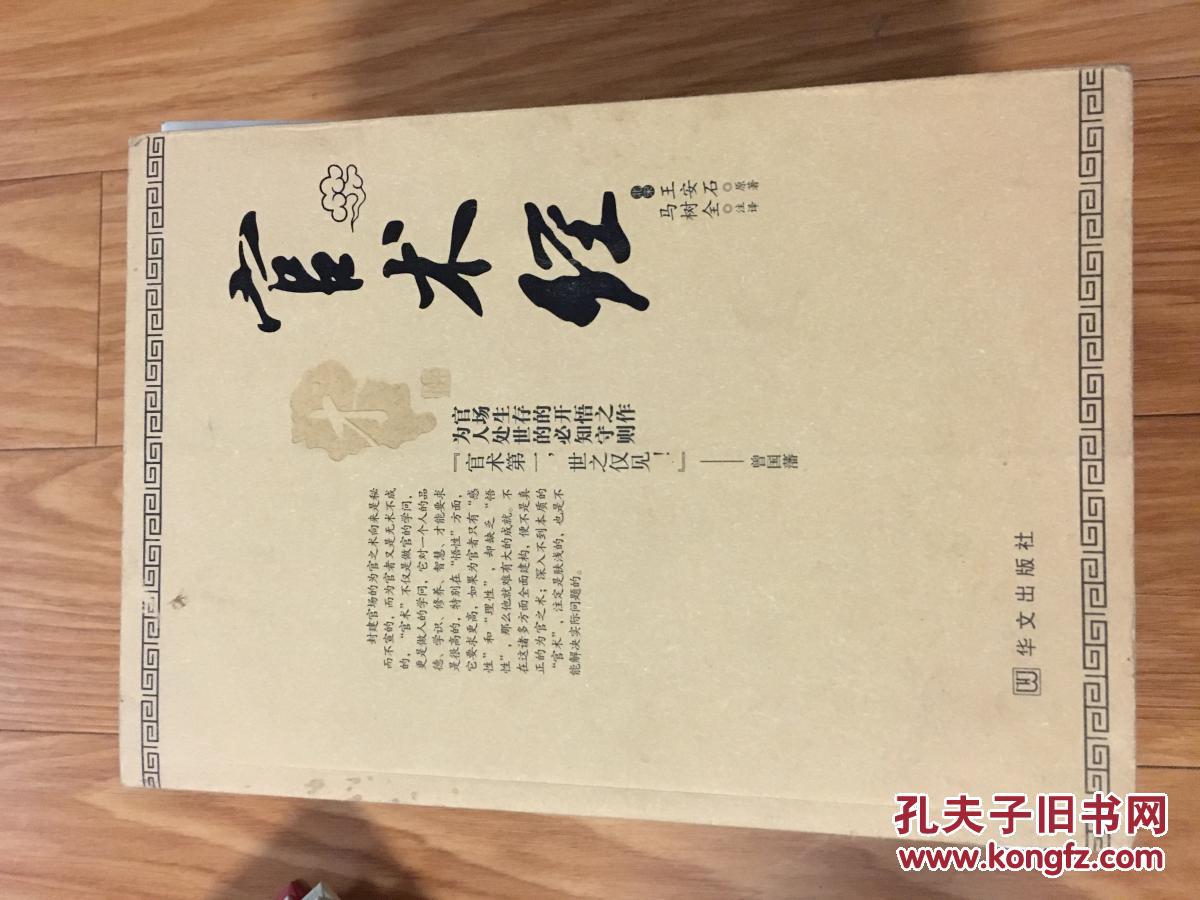 官术经
北宋
王安石◎原著
马树全◎注译
为官场生存的开悟之作
人处世的必知守则
『官术第一，世之仅见！』
——曾国藩
封建官场的为官之术向来是秘
而不宣的，而为官者又是无术不成
的，“官术”不仅是做官的学问，
更是做人的学问，它对一个人的品
德、学识、修养、智慧、才能要求
是很高的，特别在“悟性”方面，
它要求更高，如果为官者只有“感
性”和“理性”，却缺乏“悟
性”，那么他就难有大的成就。不
在这诸多方面全面建构，便不是真
正的为官之术；深入不到本质的
“官术”，注定是肤浅的，也是不
能解决实际问题的。
华文出版社
孔夫子旧书网
www.kongfz.com